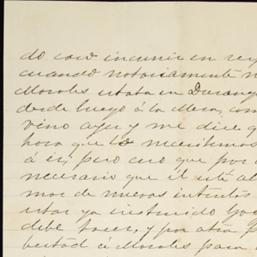 do con incurrir en res
cuando notoriamente n
Morales estaba en Durang
desde luego á la Mesa, com
vino ayer y me dice q
hora que lo necesitemos
á él, pero creo que por a
necesario que él esté al
mos de nuevos intentos
estar ya instruido Go
debe hacer, y por otra p
bertad á Morales para